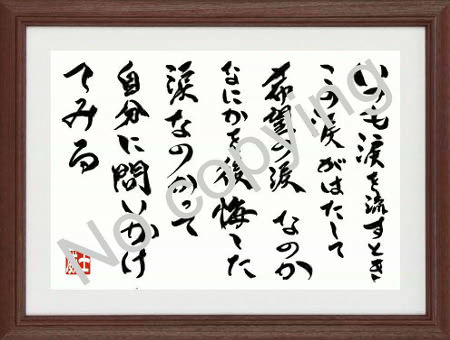 いつも涙を流すとき
この涙がはたして
希望の涙 なのか
なにかを後悔した
涙なのかって
自分に問いかけ
てみる
No copying